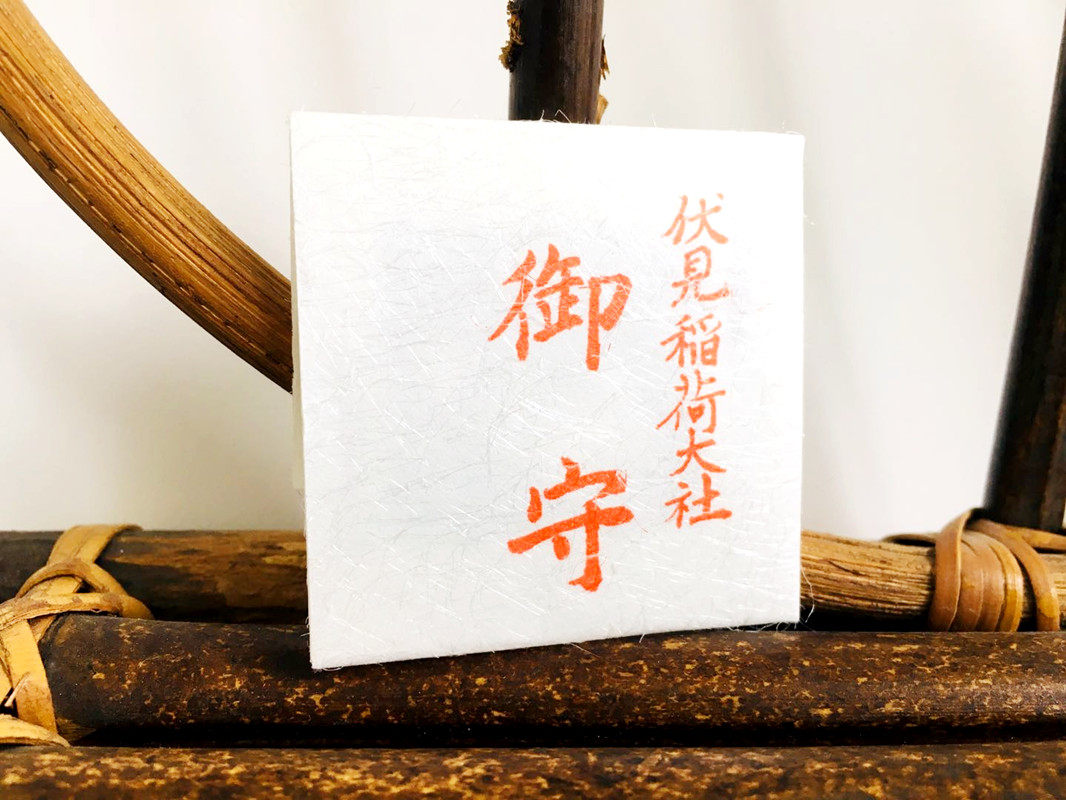 伏見稲荷大社
御守